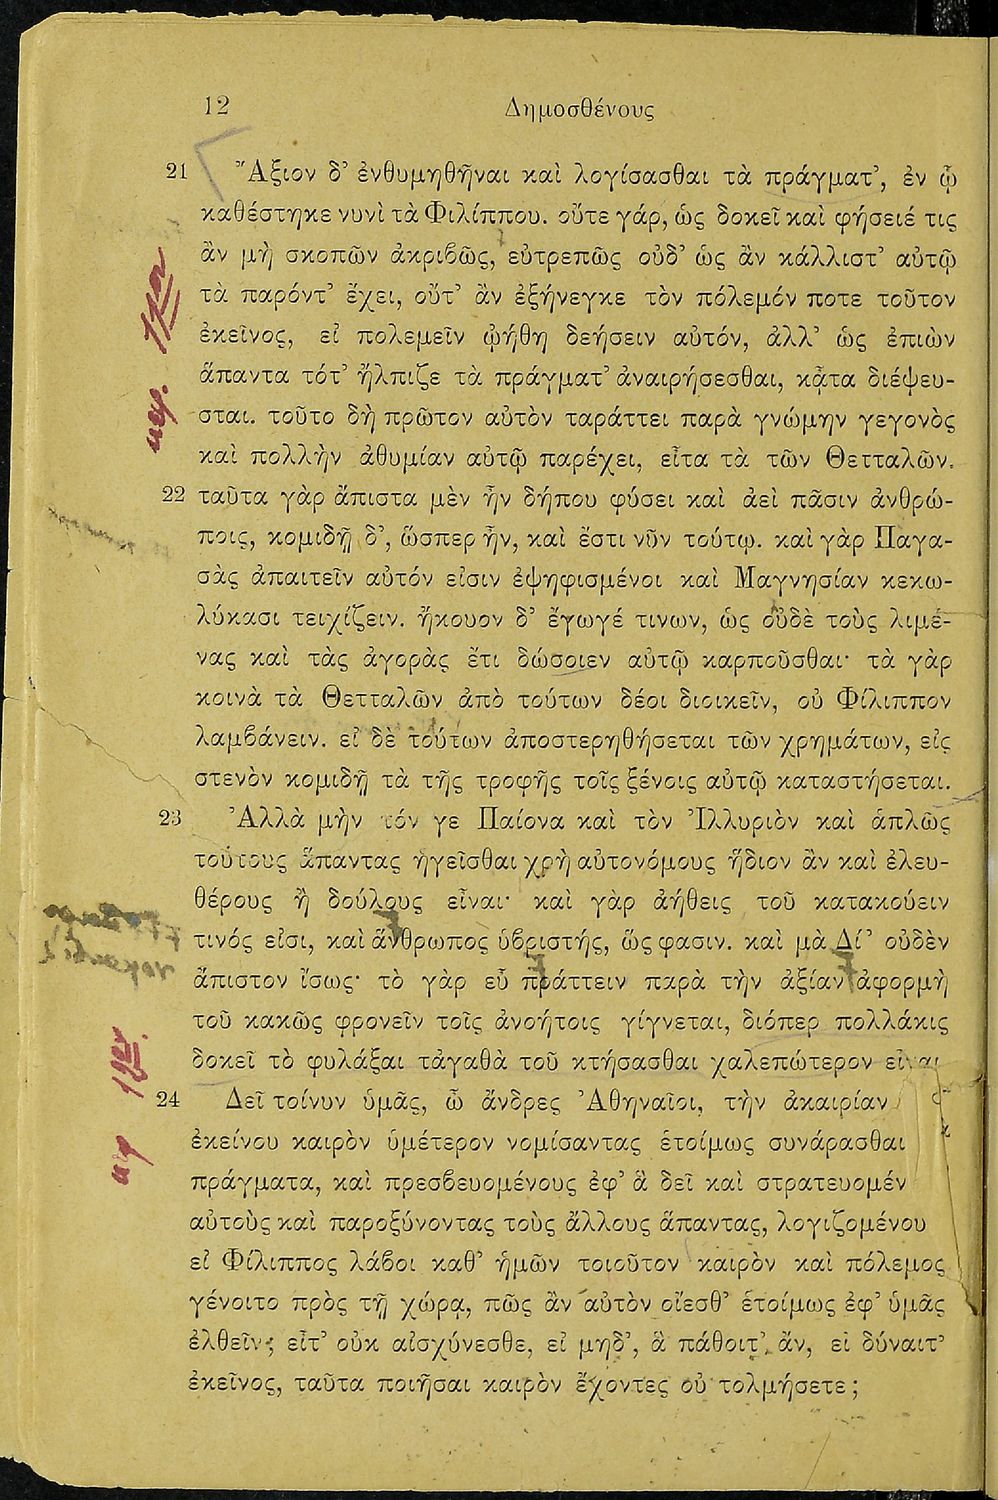 12 Δημοσθένους
21 Ἄξιον δ’ ἐνθυμηθῆναι καὶ λογίσασθαι τὰ πράγματ’, ἐν ᾧ
καθέστηκε νυνὶ τὰ Φιλίππου. οὔτε γάρ, ὡς δοκεῖ καὶ φήσειέ τις
ἂν μὴ σκοπῶν ἀκριβῶς, εὐτρεπῶς οὐδ’ ὡς ἂν κάλλιστ’ αὐτῷ
τὰ παρόντ’ ἔχει, οὔτ’ ἂν ἐξήνεγκε τὸν πόλεμόν ποτε τοῦτον
ἐκεῖνος, εἰ πολεμεῖν ᾠήθη δεήσειν αὐτόν, ἀλλ’ ὡς ἐπιὼν
ἅπαντα τότ’ ἤλπιζε τὰ πράγματ’ ἀναιρήσεσθαι, κᾆτα διέψευ-
σται. τοῦτο δὴ πρῶτον αὐτὸν ταράττει παρὰ γνώμην γεγονὸς
καὶ πολλὴν ἀθυμίαν αὐτῷ παρέχει, εἶτα τὰ τῶν Θετταλῶν.
22 ταῦτα γὰρ ἄπιστα μὲν ἦν δήπου φύσει καὶ ἀεὶ πᾶσιν ἀνθρώ-
ποις, κομιδῇ δ’, ὥσπερ ἦν, καὶ ἔστι νῦν τούτῳ. καὶ γὰρ Παγα-
σὰς ἀπαιτεῖν αὐτόν εἰσιν ἐψηφισμένοι καὶ Μαγνησίαν κεκω-
λύκασι τειχίζειν. ἤκουον δ’ ἔγωγέ τινων, ὡς οὐδὲ τοὺς λιμέ-
νας καὶ τὰς ἀγορὰς ἔτι δώσοιεν αὐτῷ καρποῦσθαι· τὰ γὰρ
κοινὰ τὰ Θετταλῶν ἀπὸ τούτων δέοι διοικεῖν, οὐ Φίλιππον
λαμβάνειν. εἰ δὲ τούτων ἀποστερηθήσεται τῶν χρημάτων, εἰς
στενὸν κομιδῇ τὰ τῆς τροφῆς τοῖς ξένοις αὐτῷ καταστήσεται.
23 Ἀλλὰ μὴν τόν γε Παίονα καὶ τὸν Ἰλλυριὸν καὶ ἁπλῶς
τούτους ἅπαντας ἡγεῖσθαι χρὴ αὐτονόμους ἥδιον ἂν καὶ ἐλευ-
θέρους ἢ δούλους εἶναι· καὶ γὰρ ἀήθεις τοῦ κατακούειν
τινός εἰσι, καὶ ἄνθρωπος ὑβριστής, ὥς φασιν. καὶ μὰ Δί’ οὐδὲν
ἄπιστον ἴσως· τὸ γὰρ εὖ πράττειν παρὰ τὴν ἀξίαν ἀφορμὴ
τοῦ κακῶς φρονεῖν τοῖς ἀνοήτοις γίγνεται, διόπερ πολλάκις
δοκεῖ τὸ φυλάξαι τἀγαθὰ τοῦ κτήσασθαι χαλεπώτερον εἶναι
24 Δεῖ τοίνυν ὑμᾶς, ὦ ἄνδρες Ἀθηναῖοι, τὴν ἀκαιρίαν
ἐκείνου καιρὸν ὑμέτερον νομίσαντας ἑτοίμως συνάρασθαι
πράγματα, καὶ πρεσβευομένους ἐφ’ ἃ δεῖ καὶ στρατευομέν
αὐτοὺς καὶ παροξύνοντας τοὺς ἄλλους ἅπαντας, λογιζομένου
εἰ Φίλιππος λάβοι καθ’ ἡμῶν τοιοῦτον καιρὸν καὶ πόλεμος
γένοιτο πρὸς τῇ χώρᾳ, πῶς ἂν αὐτὸν οἴεσθ’ ἑτοίμως ἐφ’ ὑμᾶς
ἐλθεῖν; εἶτ’ οὐκ αἰσχύνεσθε, εἰ μηδ’, ἃ πάθοιτ’ ἄν, εἰ δύναιτ’
ἐκεῖνος, ταῦτα ποιῆσαι καιρὸν ἔχοντες οὐ τολμήσετε;